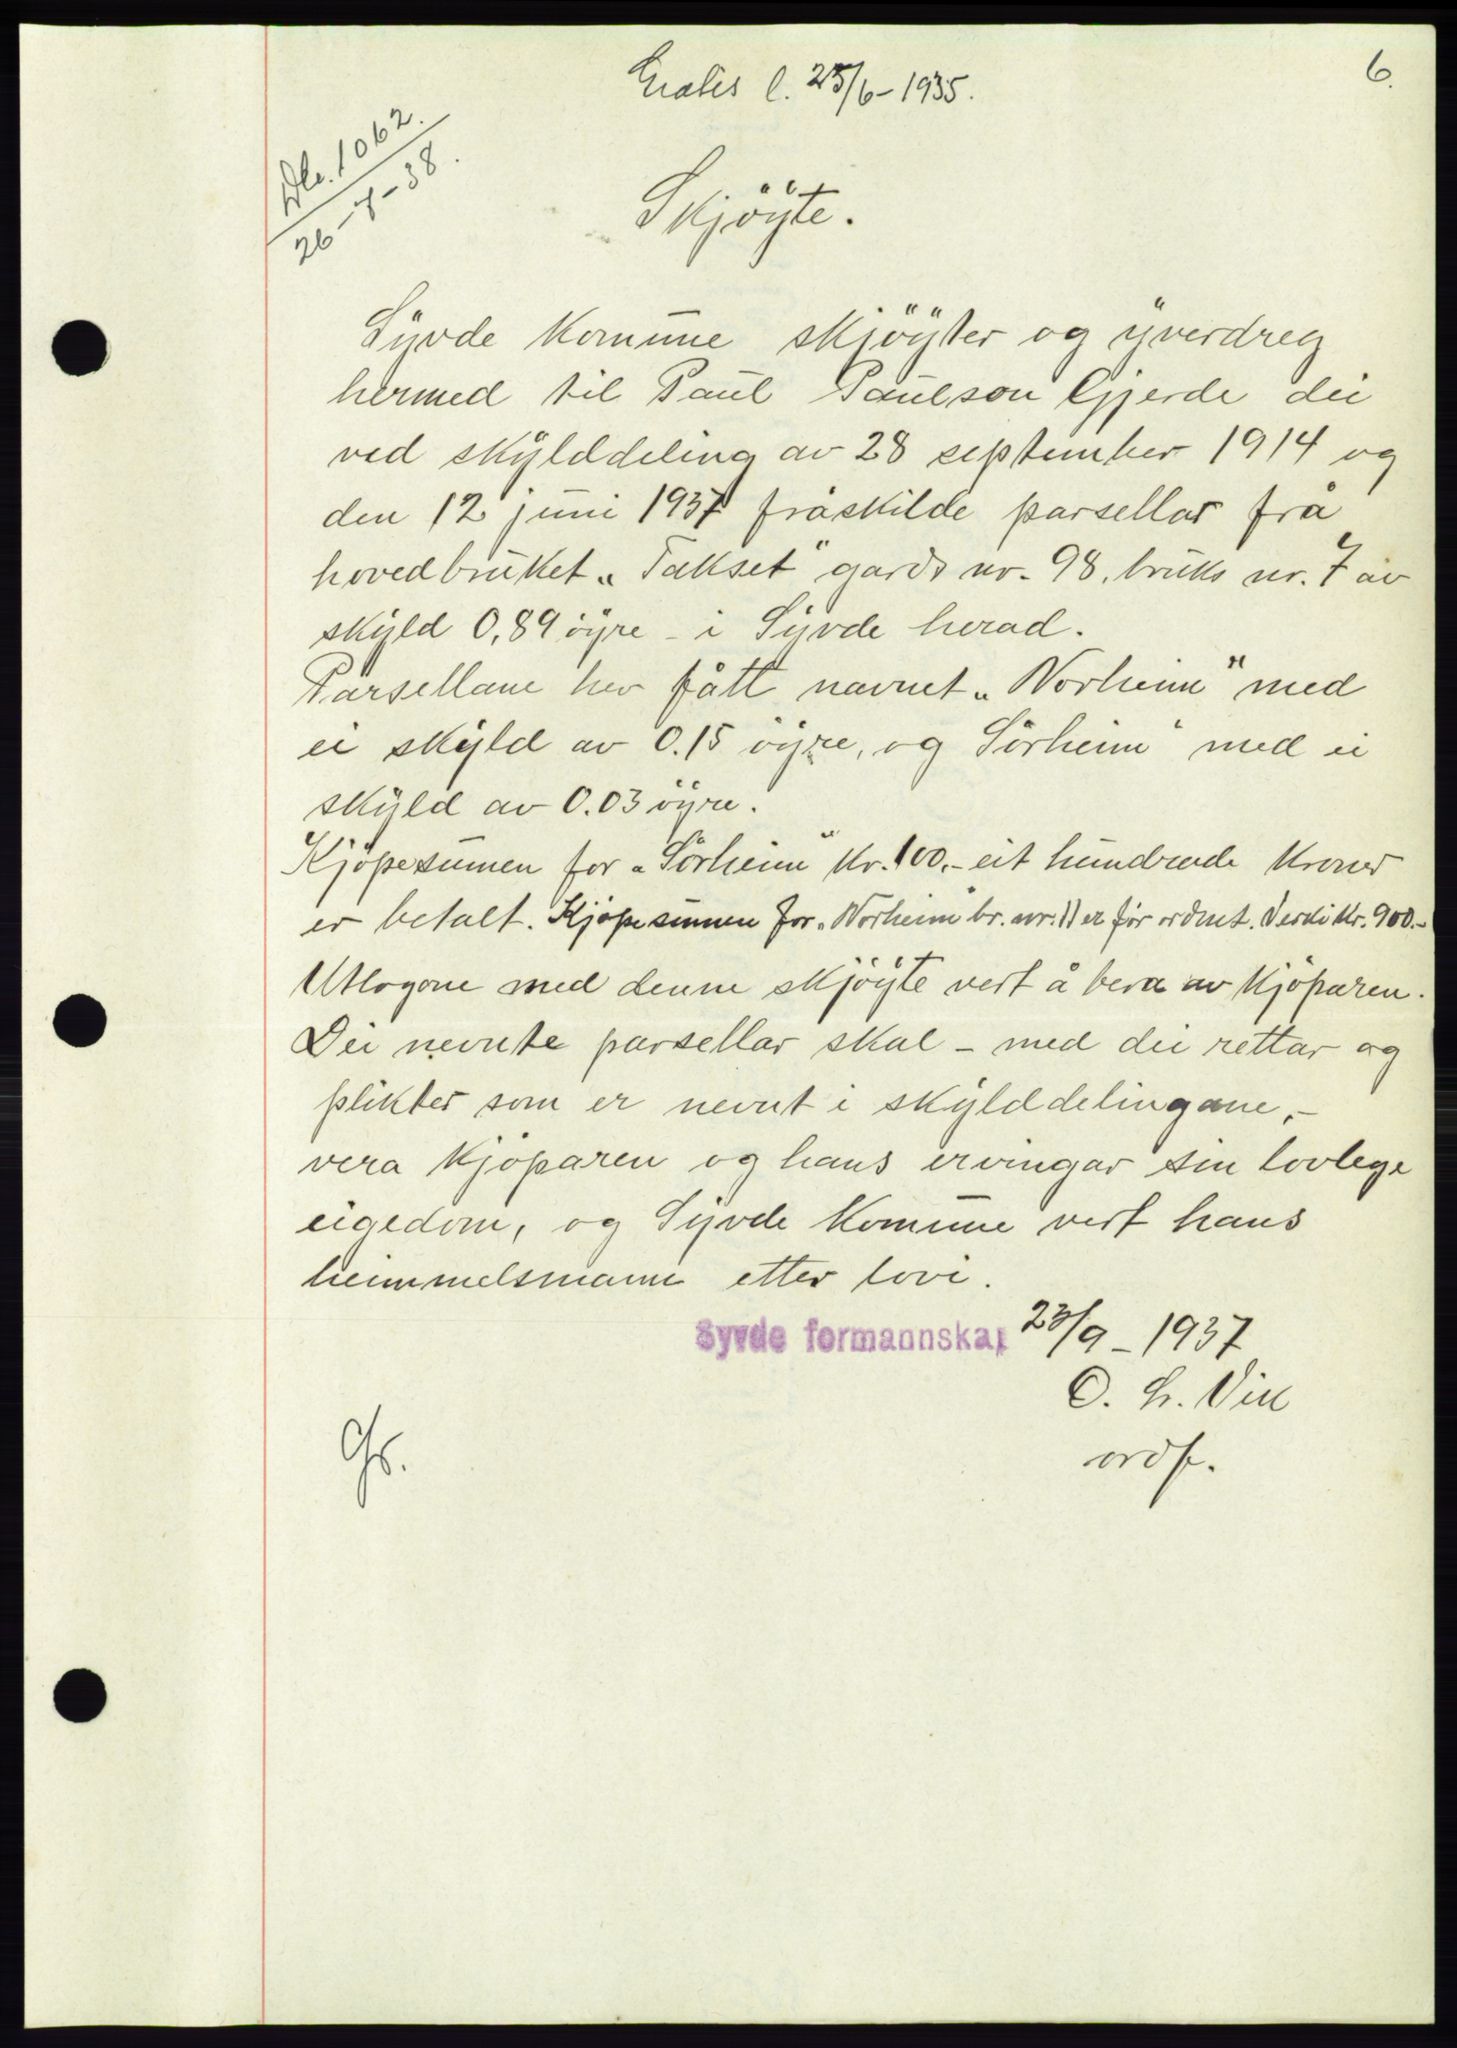 6.
Gratis l. 25/6-1935.
Db. 1062.
26-7-38.
Skjöyte.
Syvde Komune skjöyter og yverdreg
hermed til Paul Paulson Gjerde dei
ved skylddeling av 28 september 1914 og
den 12 juni 1937 fråskilde parsellar frå
hovedbruket „Takset" gards nr. 98, bruks nr. 7 av
skyld 0,89 öyre - i Syvde herad.
Parsellane hev fått navnet „Norheim" med
ei skyld av 0.15 öyre, og Sörheim" med ei
skyld av 0.03 öyre.
Kjöpesumen for „Sörheim" Kr. 100.- eit hundrede Kroner
er betalt. Kjöpesumen for „Norheim" br. nr. 11 er för ordnet. Verdi Kr. 900.-
Utlogone med denne skjöyte vert å bera av Kjöparen.
Dei nevnte parsellar skal - med dei rettar og
plikter som er nevnt i skylddelingane, -
vera Kjöparen og hans ervingar sin lovlege
eigedom, og Syvde Komune vert hans
heimmelsmann etter lovi.
Syvde formannskap 23/9-1937
O. L. Vik
ordf.